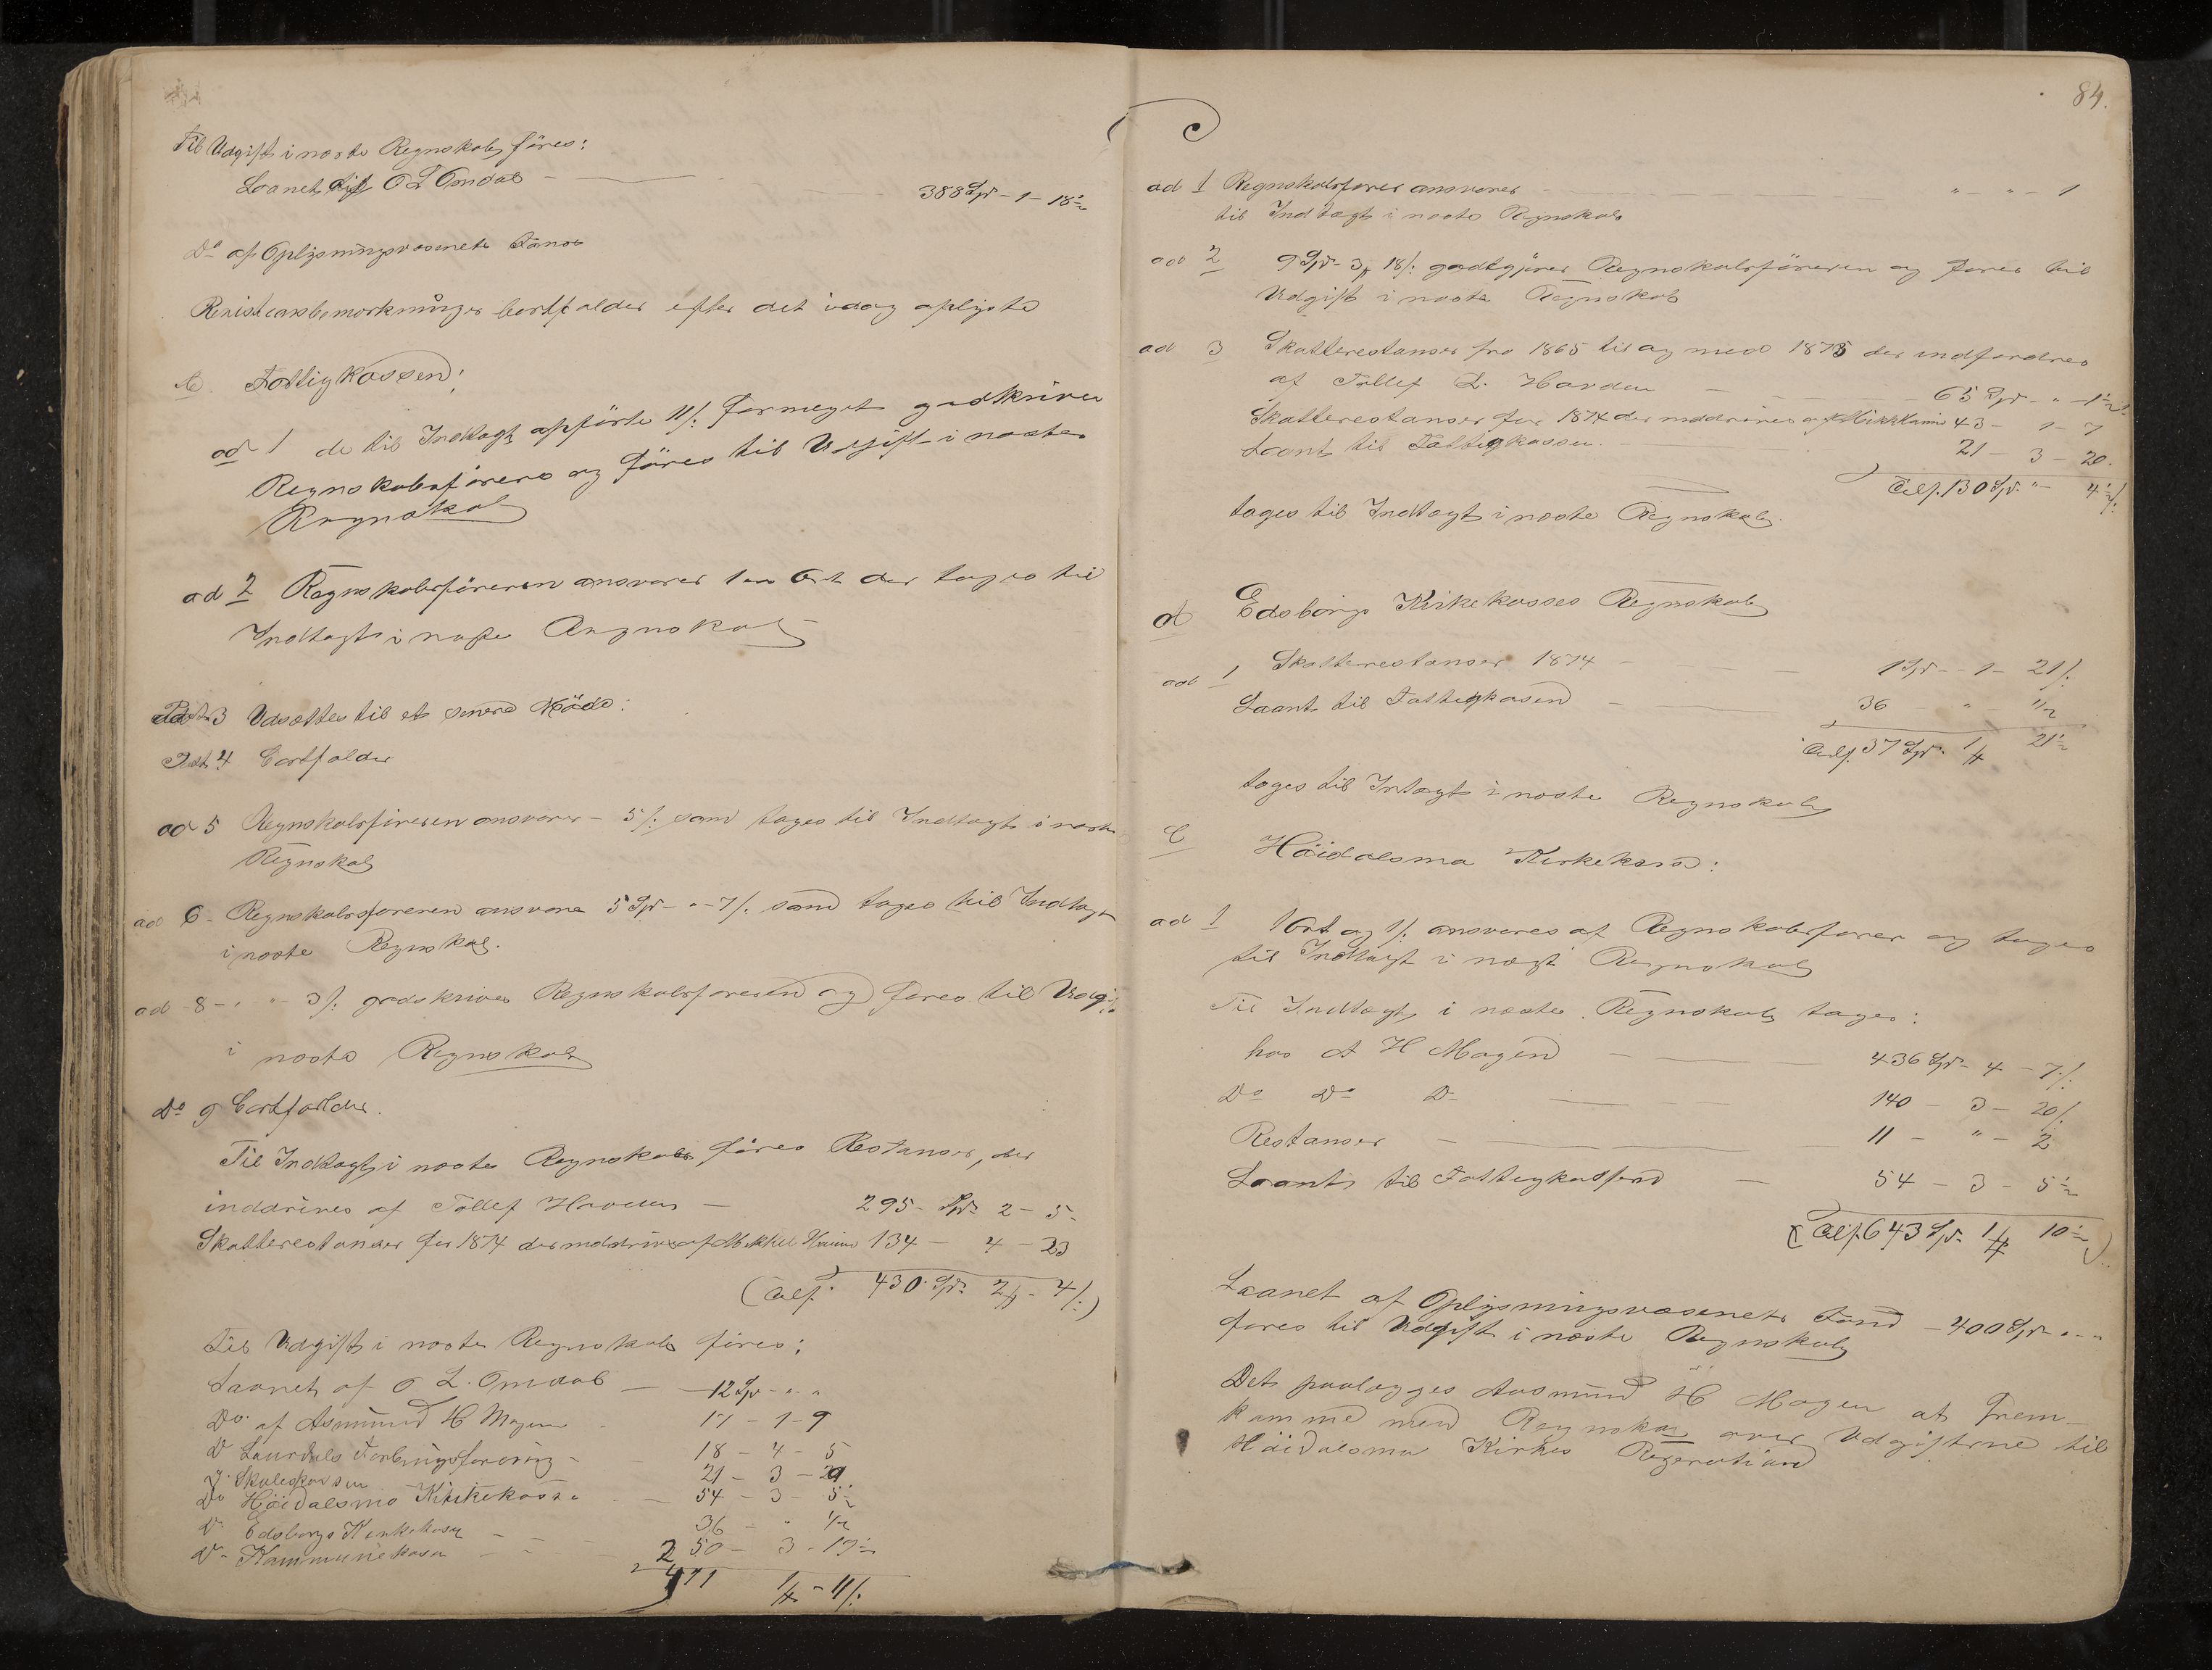 Til Udgift i næste Regnskab föres:
Laanet af O L Omdal — 388 Spd - 1 - 18½
Do af Oplysningsvæsenets Fond
Revisionsbemærkninger bortfalder efter det idag oplyste
Fattigkassen:
ad 1 de til Indtægt opförte 11 /: formeget godskrives
Regnskabsförere og föres til Udgift i næste
Regnskab
ad 2 Regnskabsföreren ansvarer 1en Ort der tages til
Indtægt i næste Regnskab
Post 3 Udsættes til et senere Möde:
Post 4 Bortfalder
ad 5 Regnskabsföreren ansvarer - 5 /: som tages til Indtægt i næste
Regnskab
ad 6 - Regnskabsföreren ansvare 5 Spd - " - 7 /: som tages til Indtægt
i næste Regnskab.
ad - 8 - " " 3 /: godskrives Regnskabsföreren og föres til Udgift
i næste Regnskab
Do 9 Bortfalder.
Til Indtægt i næste Regnskab föres Restanser, der
inddrives af Tollef — 295 - Spd 2 - 5 -
Skatterestanser for 1874 der inddrives af Mikkel 134 - 4 - 23
(Tils. 430 Spd 2 - 4 /:)
Til Udgift i næste Regnskab föres:
Laanet af O L. Omdal — 12 Spd - " - "
Do. af Asmund H Mogen 17 - 1 - 9
D Laurdals 18 - 4 - 5
Skolekassen 21 - 3 - 20
Do Höidalsmo Kirkekasse — 54 - 3 - 5½
D. Edsborgs Kirkekasse 36 - " - ½
D. Kommunekassen 250 - 3 - 17½
471 1 - 11 /:
84.
ad 1 Regnskabsförer ansvarer " - " - 1
til Indtægt i næste Regnskab
ad 2 9 Spd - 3 18 /: godtgjöres Regnskabsföreren og föres til
Udgift i næste Regnskab
ad 3 Skatterestanser fra 1865 til og med 1873 der indfordres
af Tollef L. — 65 Spd - " - 1½
Skatterestanser for 1874 der inddrives af Mikkel 43 - 1 - 7
Laant til Fattigkassen. 21 - 3 - 20.
Tils. 130 Spd. " - 4½ /:
tages til Indtægt i næste Regnskab.
d Edsborgs Kirkekasses Regnskab
ad 1 Skatterestanser 1874 — 1 Spd - 1 - 21 /:
Laant til Fattigkassen — 36 - " - ½
Tils. 37 Spd. 1 21½
tages til Intægt i næste Regnskab
Höidalsmo Kirkekasse:
ad 1 1 Ort og 1 /: ansvares af Regnskabsförer og tages
til Indtægt i næste Regnskab
Til Indtægt i næste Regnskab tages:
hos A H Mogen — 436 Spd - 4 - 7 /:
Do Do D — 140 - 3 - 20 /:
Restanser — 11 - " - 2
Laant til Fattigkassen — 54 - 3 - 5½
(Tils. 643 Spd. 1 10½)
Laanet af Oplysningsvæsenets Fond - 400 Spd " - "
föres til Udgift i næste Regnskab
Det paalægges Aasmund H Mogen at frem-
komme med Regnskab over Udgifterne til
Höidalsmo Kirkes